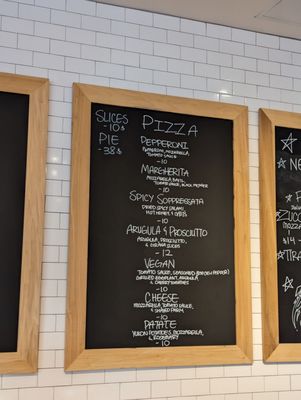 SLICES
-10$
PIE
-38$
PIZZA
PEPPERONI
PEPPERONI, MOZZARELLA,
TOMATO SAUCE
-10
MARGHERITA
MOZZARELLA, BASIL,
TOMATO SAUCE, BLACK PEPPER
-10
SPICY SOPPRESSATA
DRIED SPICY SALAMI
HOT HONEY,
-10
ARUGULA & PROSCIUTTO
ARUGULA, PROSCIUTTO,
& GRANA
-12
VEGAN
TOMATO SAUCE, SEASONED
GRILLED EGGPLANT, ARUGULA
& CHERRY TOMATOES
-10
CHEESE
MOZZARELLA, TOMATO SAUCE,
& SHAVED PARM
-10
PATATE
YUKON POTATOES, MOZZARELLA,
& ROSEMARY
-10
NE
ZUCC
MOZZA
$14
TIRA